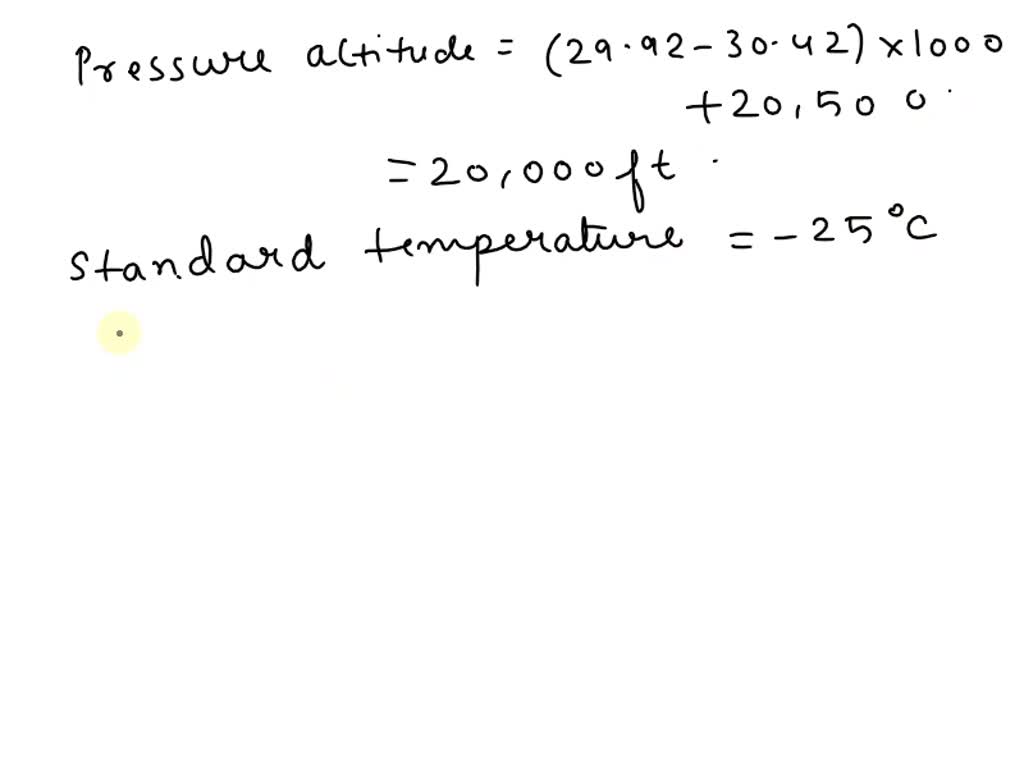 Pressure altitude = (29.92-30.42) x1000
+20,500
=20,000ft.
standard temperature = -25°C